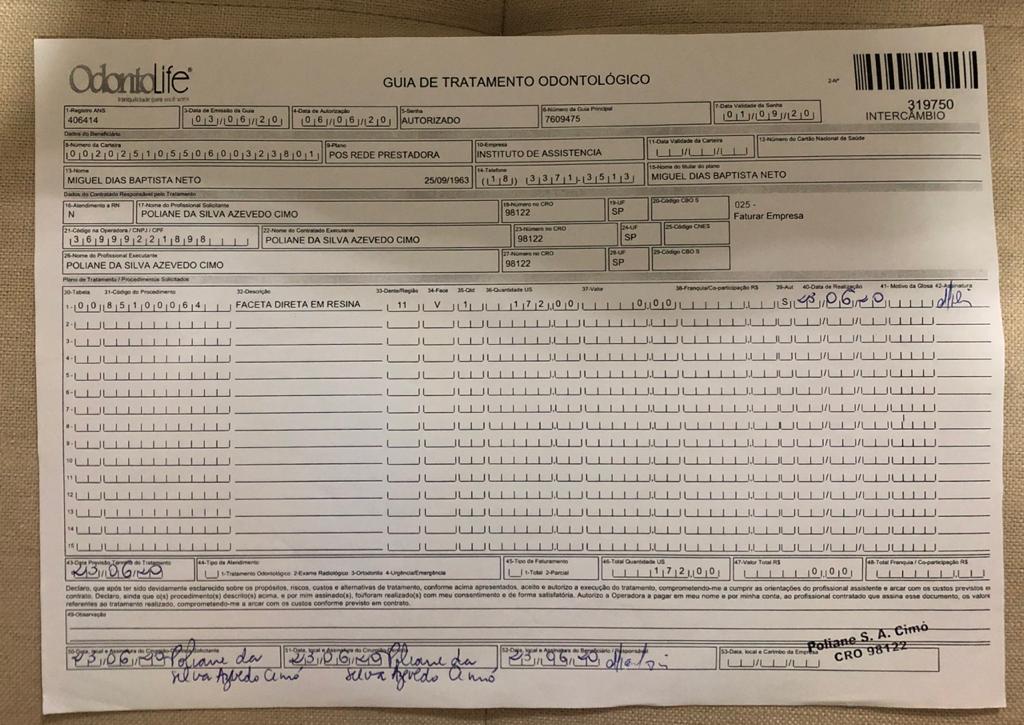 OdontoLife®
tranquilidade para você sorrir
GUIA DE TRATAMENTO ODONTOLÓGICO
2-Nº
319750
INTERCÂMBIO
1-Registro ANS 3-Data de Emissão da Guia 4-Data de Autorização 5-Senha 6-Número da Guia Principal 7-Data Validade da Senha
406414 03/06/20 06/06/20 AUTORIZADO 7609475 01/09/20
Dados do Beneficiário
8-Número da Carteira 9-Plano 10-Empresa 11-Data Validade da Carteira 12-Número do Cartão Nacional da Saúde
00202510550600323801 POS REDE PRESTADORA INSTITUTO DE ASSISTENCIA
13-Nome 14-Telefone 15-Nome do titular do plano
MIGUEL DIAS BAPTISTA NETO 25/09/1963 (18) 3371-3513 MIGUEL DIAS BAPTISTA NETO
Dados do Contratado Responsável pelo Tratamento
16-Atendimento a RN 17-Nome do Profissional Solicitante 18-Número no CRO 19-UF 20-Código CBO S
N POLIANE DA SILVA AZEVEDO CIMO 98122 SP
025 -
Faturar Empresa
21-Código na Operadora / CNPJ / CPF 22-Nome do Contratado Executante 23-Número no CRO 24-UF 25-Código CNES
36999221898 POLIANE DA SILVA AZEVEDO CIMO 98122 SP
26-Nome do Profissional Executante 27-Número no CRO 28-UF 29-Código CBO S
POLIANE DA SILVA AZEVEDO CIMO 98122 SP
Plano de Tratamento / Procedimentos Solicitados
30-Tabela 31-Código do Procedimento 32-Descrição 33-Dente/Região 34-Face 35-Qtd 36-Quantidade US 37-Valor 38-Franquia/Co-participação R$ 39-Aut 40-Data de Realização 41- Motivo da Glosa 42-Assinatura
1- 00 85100064 FACETA DIRETA EM RESINA 11 V 1 172,00 0,00 S 23/06/20
2-
3-
4-
5-
6-
7-
8-
9-
10
11
12
13
14
15
43-Data Previsão Término do Tratamento 44-Tipo de Atendimento 45-Tipo de Faturamento 46-Total Quantidade US 47-Valor Total R$ 48-Total Franquia / Co-participação R$
23/06/20 1-Tratamento Odontológico 2-Exame Radiológico 3-Ortodontia 4-Urgência/Emergência 1-Total 2-Parcial 172,00 0,00
Declaro, que após ter sido devidamente esclarecido sobre os propósitos, riscos, custos e alternativas de tratamento, conforme acima apresentados, aceito e autorizo a execução do tratamento, comprometendo-me a cumprir as orientações do profissional assistente e arcar com os custos previstos em
contrato. Declaro, ainda que o(s) procedimento(s) descrito(s) acima, e por mim assinado(s), foi/foram realizado(s) com meu consentimento e de forma satisfatória. Autorizo a Operadora a pagar em meu nome e por minha conta, ao profissional contratado que assina esse documento, os valores
referentes ao tratamento realizado, comprometendo-me a arcar com os custos conforme previsto em contrato.
49-Observação
Poliane S. A. Cimó
CRO 98122
50-Data, local e Assinatura do Cirurgião Solicitante 51-Data, local e Assinatura do Cirurgião 52-Data, local e Assinatura do Beneficiário / Responsável 53-Data, local e Carimbo da Empresa
23/06/20 Poliane da 23/06/20 Poliane da 23/06/20
Silva Azevedo Cimó Silva Azevedo Cimó